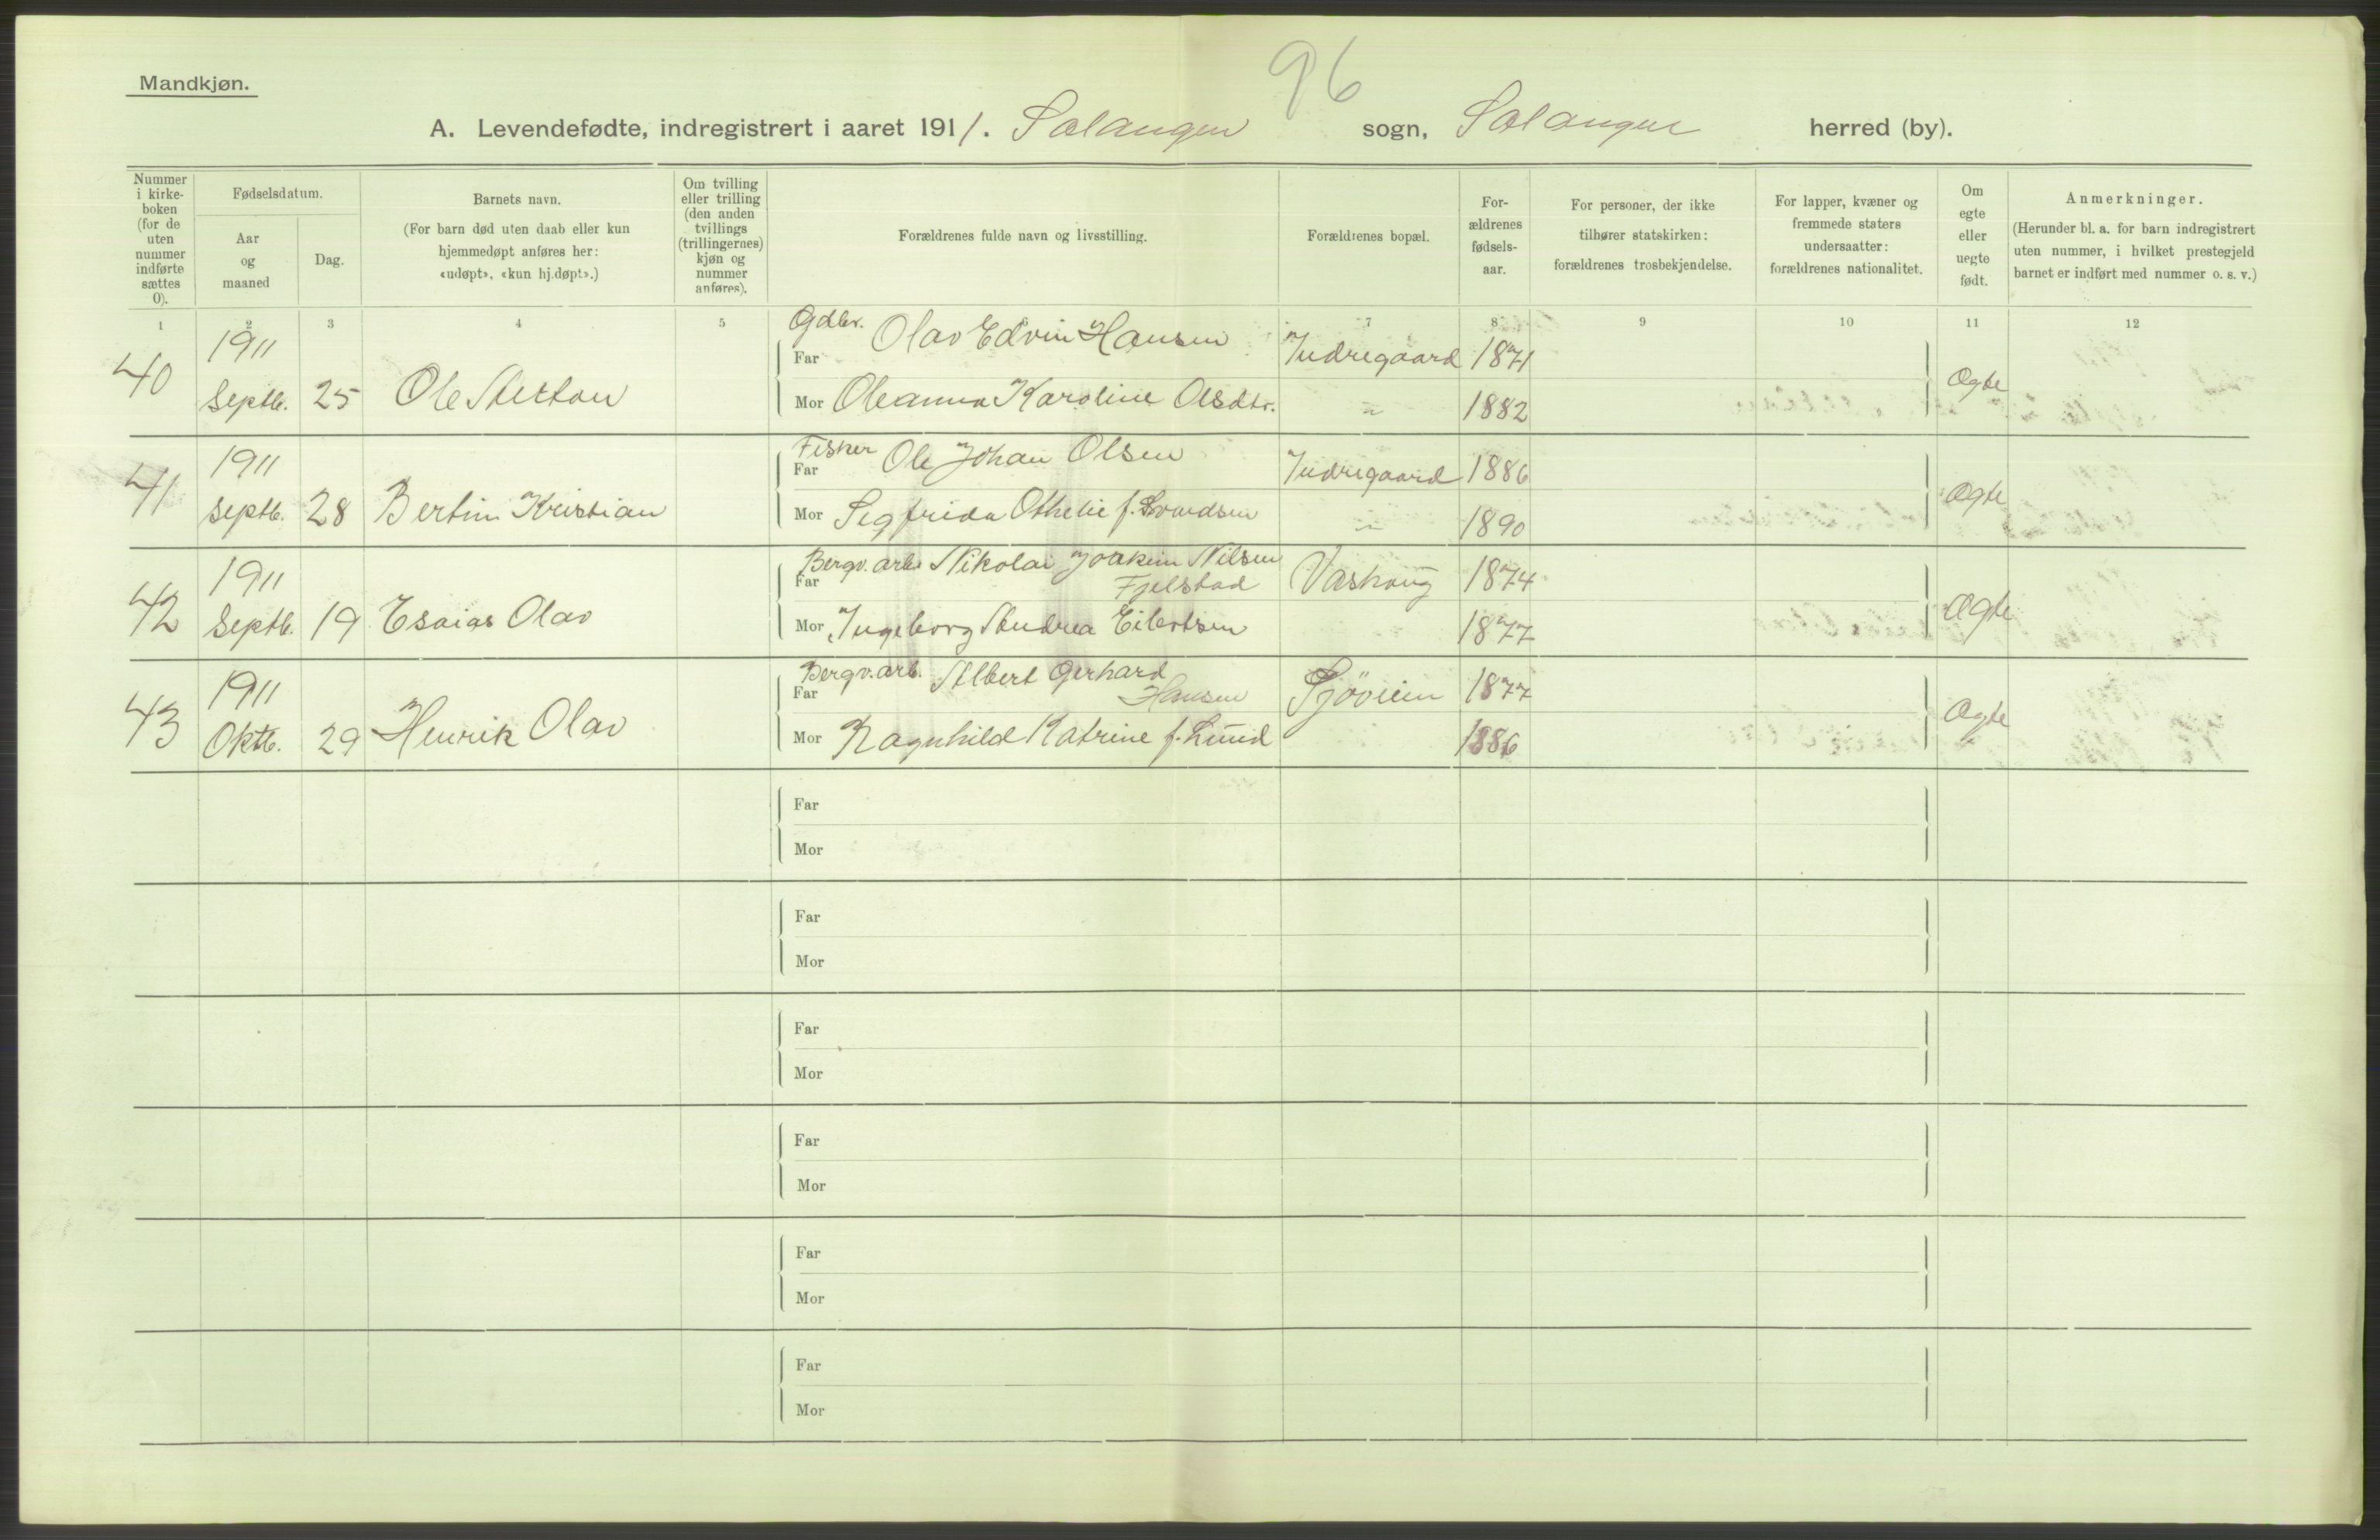 96
Mandkjøn.
A. Levendefødte, indregistrert i aaret 1911. Salangen sogn, Salangen herred (by).
Nummer i kirkeboken (for de uten nummer indførte sættes 0).
Fødselsdatum.
Aar og maaned
Dag.
Barnets navn.
(For barn død uten daab eller kun hjemmedøpt anføres her: «udøpt», «kun hj.døpt».)
Om tvilling eller trilling (den anden tvillings (trillingernes) kjøn og nummer anføres).
Forældrenes fulde navn og livsstilling.
Forældrenes bopæl.
Forældrenes fødselsaar.
For personer, der ikke tilhører statskirken: forældrenes trosbekjendelse.
For lapper, kvæner og fremmede staters undersaatter: forældrenes nationalitet.
Om egte eller uegte født.
Anmerkninger.
(Herunder bl. a. for barn indregistrert uten nummer, i hvilket prestegjeld barnet er indført med nummer o. s. v.)
1 2 3 4 5 7 8 9 10 11 12
40 1911 Septb. 25 Ole Merton
Gdbr. Far Olav Edvin Hansen Indregaard 1871
Mor Oleanna Karoline Olsdtr. " 1882 Ægte
41 1911 Septb. 28 Bertin Kristian
Fisker Far Ole Johan Olsen Indregaard 1886
Mor Segfrida Othelie f. " 1890 Ægte
42 1911 Septb. 19 Esaias Olav
Bergv. arb. Far Nikolai Joakim Nilsen Fjelstad Vashaug 1874
Mor Ingeborg Andrea Eilertsen 1877 Ægte
43 1911 Oktb. 29 Henrik Olav
Bergv. arb. Far Albert Gerhard Hansen Sjøveien 1877
Mor Ragnhild Katrine f. Lund 1886 Ægte
Far
Mor
Far
Mor
Far
Mor
Far
Mor
Far
Mor
Far
Mor